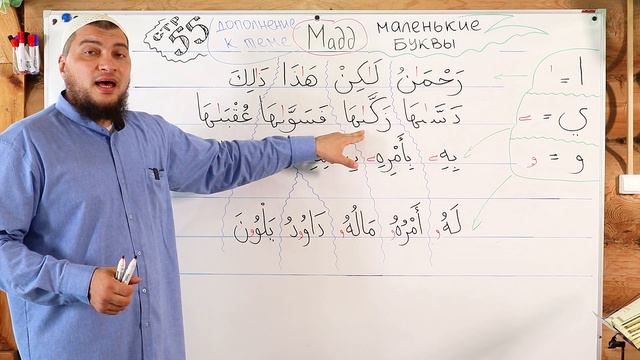 стр 55 дополнение к теме Мадд маленькие буквы
رَحْمَٰنُ لَٰكِنْ هَٰذَا ذَٰلِكَ
دَسَّىٰهَا زَكَّىٰهَا فَسَوَّىٰهَا عُقْبَىٰهَا
بِهِۦ بِأَمْرِهِۦ
لَهُۥ أَمْرُهُۥ مَالُهُۥ دَاوُۥدُ يَلْوُۥنَ
ا = ٰ
ي = ے
و = و